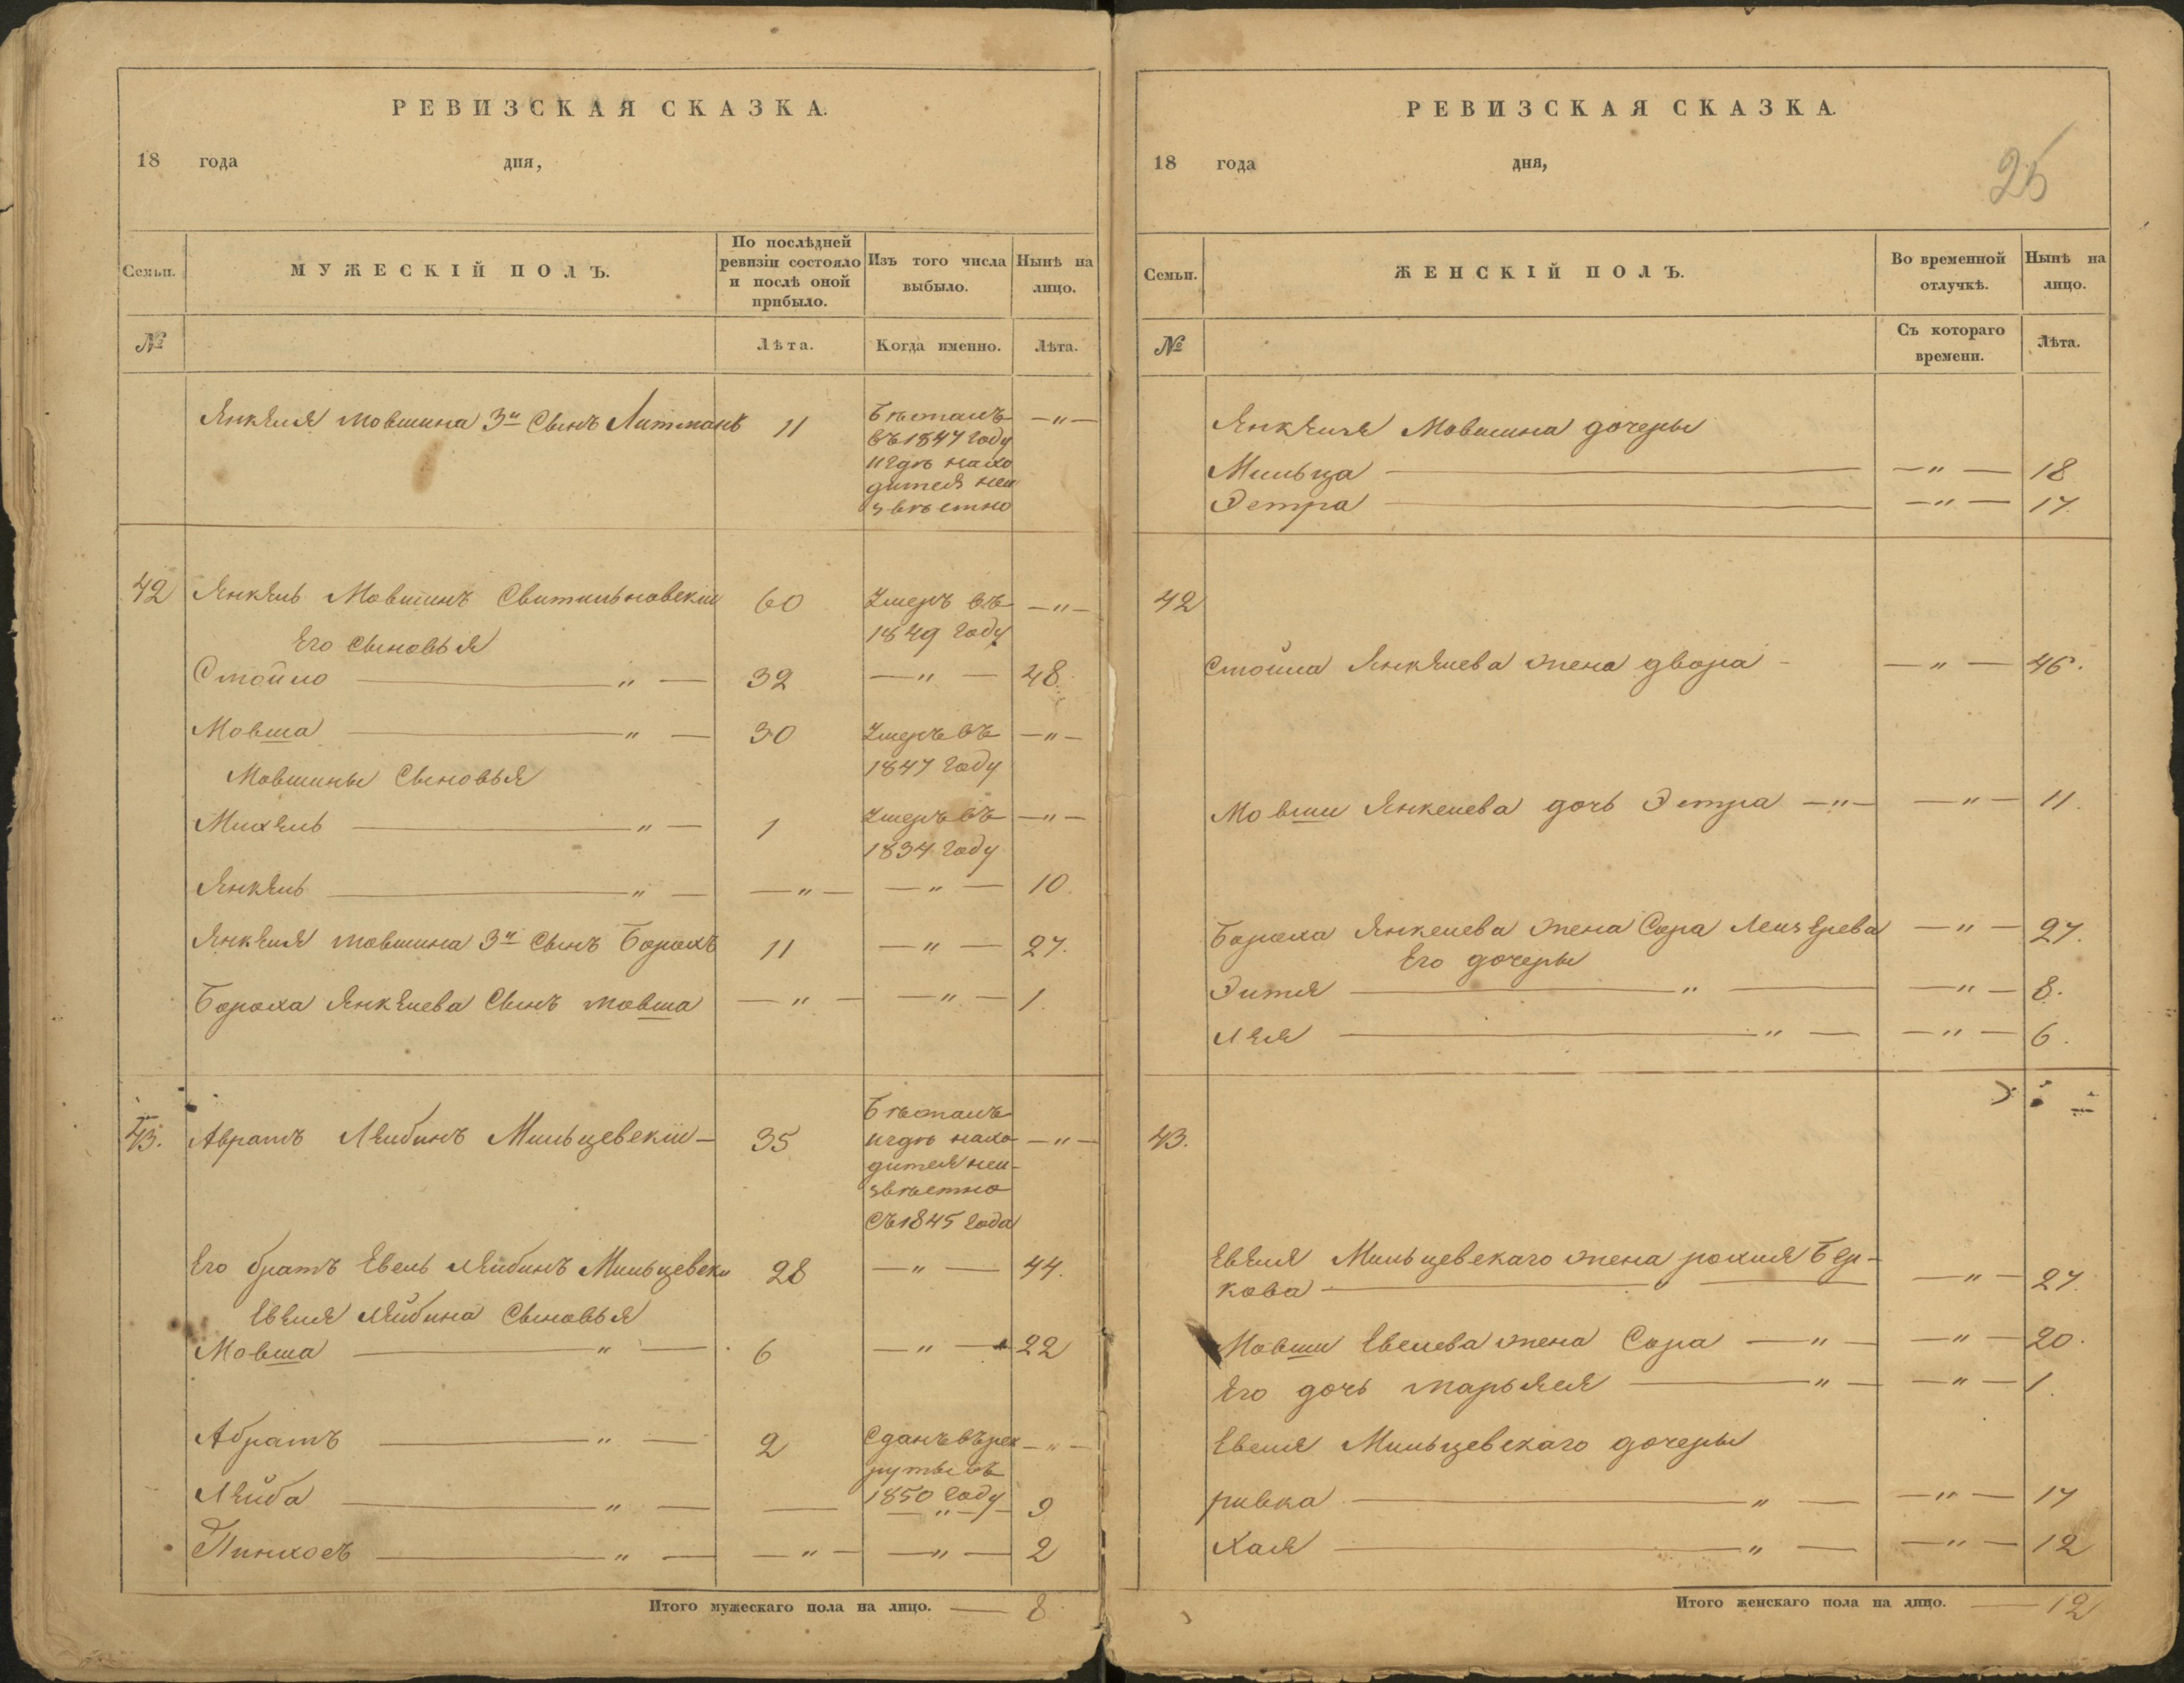 РЕВИЗСКАЯ СКАЗКА.
18 года дня,
Семьи. МУЖЕСКІЙ ПОЛЪ. По послѣдней ревизіи состояло и послѣ оной прибыло. Изъ того числа выбыло. Нынѣ на лицо.
№ Лѣта. Когда именно. Лѣта.
Янкеля Мовшина 3й Сынъ Литманъ 11 Бѣжалъ —"—
въ 1847 году
и гдѣ нахо
дится неи
звѣстно
42 Янкель Мовшинъ Свитильновскій 60 Умеръ въ —"—
1849 году
Его Сыновья
Стойло — " — 32 — " — 48.
Мовша — " — 30 Умеръ въ —"—
1847 году
Мовшины Сыновья
Михель — " — 1 Умеръ въ —"—
1834 году
Янкель — " — — " — — " — 10.
Янкеля Мовшина 3й Сынъ Борохъ 11 — " — 27.
Бороха Янкелева Сынъ Мовша — " — — " — 1.
43. Абрамъ Лейбинъ Мильцевскій — 35 Бѣжалъ
и гдѣ нахо- —"—
дится неи-
звѣстно
съ 1845 года
Его братъ Евель Лейбинъ Мильцевскій 28 — " — 44.
Евеля Лейбина Сыновья
Мовша — " — 6 — " — 22
Абрамъ — " — 2 Сданъ въ рек —"—
руты въ
1850 году
Лейба — " — — — " — 9
Пинхосъ — " — — " — — " — 2
Итого мужескаго пола на лицо. — 8
РЕВИЗСКАЯ СКАЗКА.
18 года дня,
25
Семьи. ЖЕНСКІЙ ПОЛЪ. Во временной отлучкѣ. Нынѣ на лицо.
№ Съ котораго времени. Лѣта.
Янкеля Мовшина дочеры
Мильца — — " — 18
Эстра — — " — 17.
42
Стойла Янкелева жена двора — — " — 46.
Мовши Янкелева дочь Эстра —"— — " — 11.
Бороха Янкелева жена Сора Лейзерева — " — 27.
Его дочеры
Эитля — " — — " — 8.
Лея — " — — " — 6.
43.
Евеля Мильцевскаго жена рохля Бер-
кова — " — — " — 27.
Мовши Евелева жена Сора — " — — " — 20.
Его дочь Марьяся — " — — " — 1.
Евеля Мильцевскаго дочеры
ривка — " — — " — 17
Хая — " — — " — 12
Итого женскаго пола на лицо. — 12